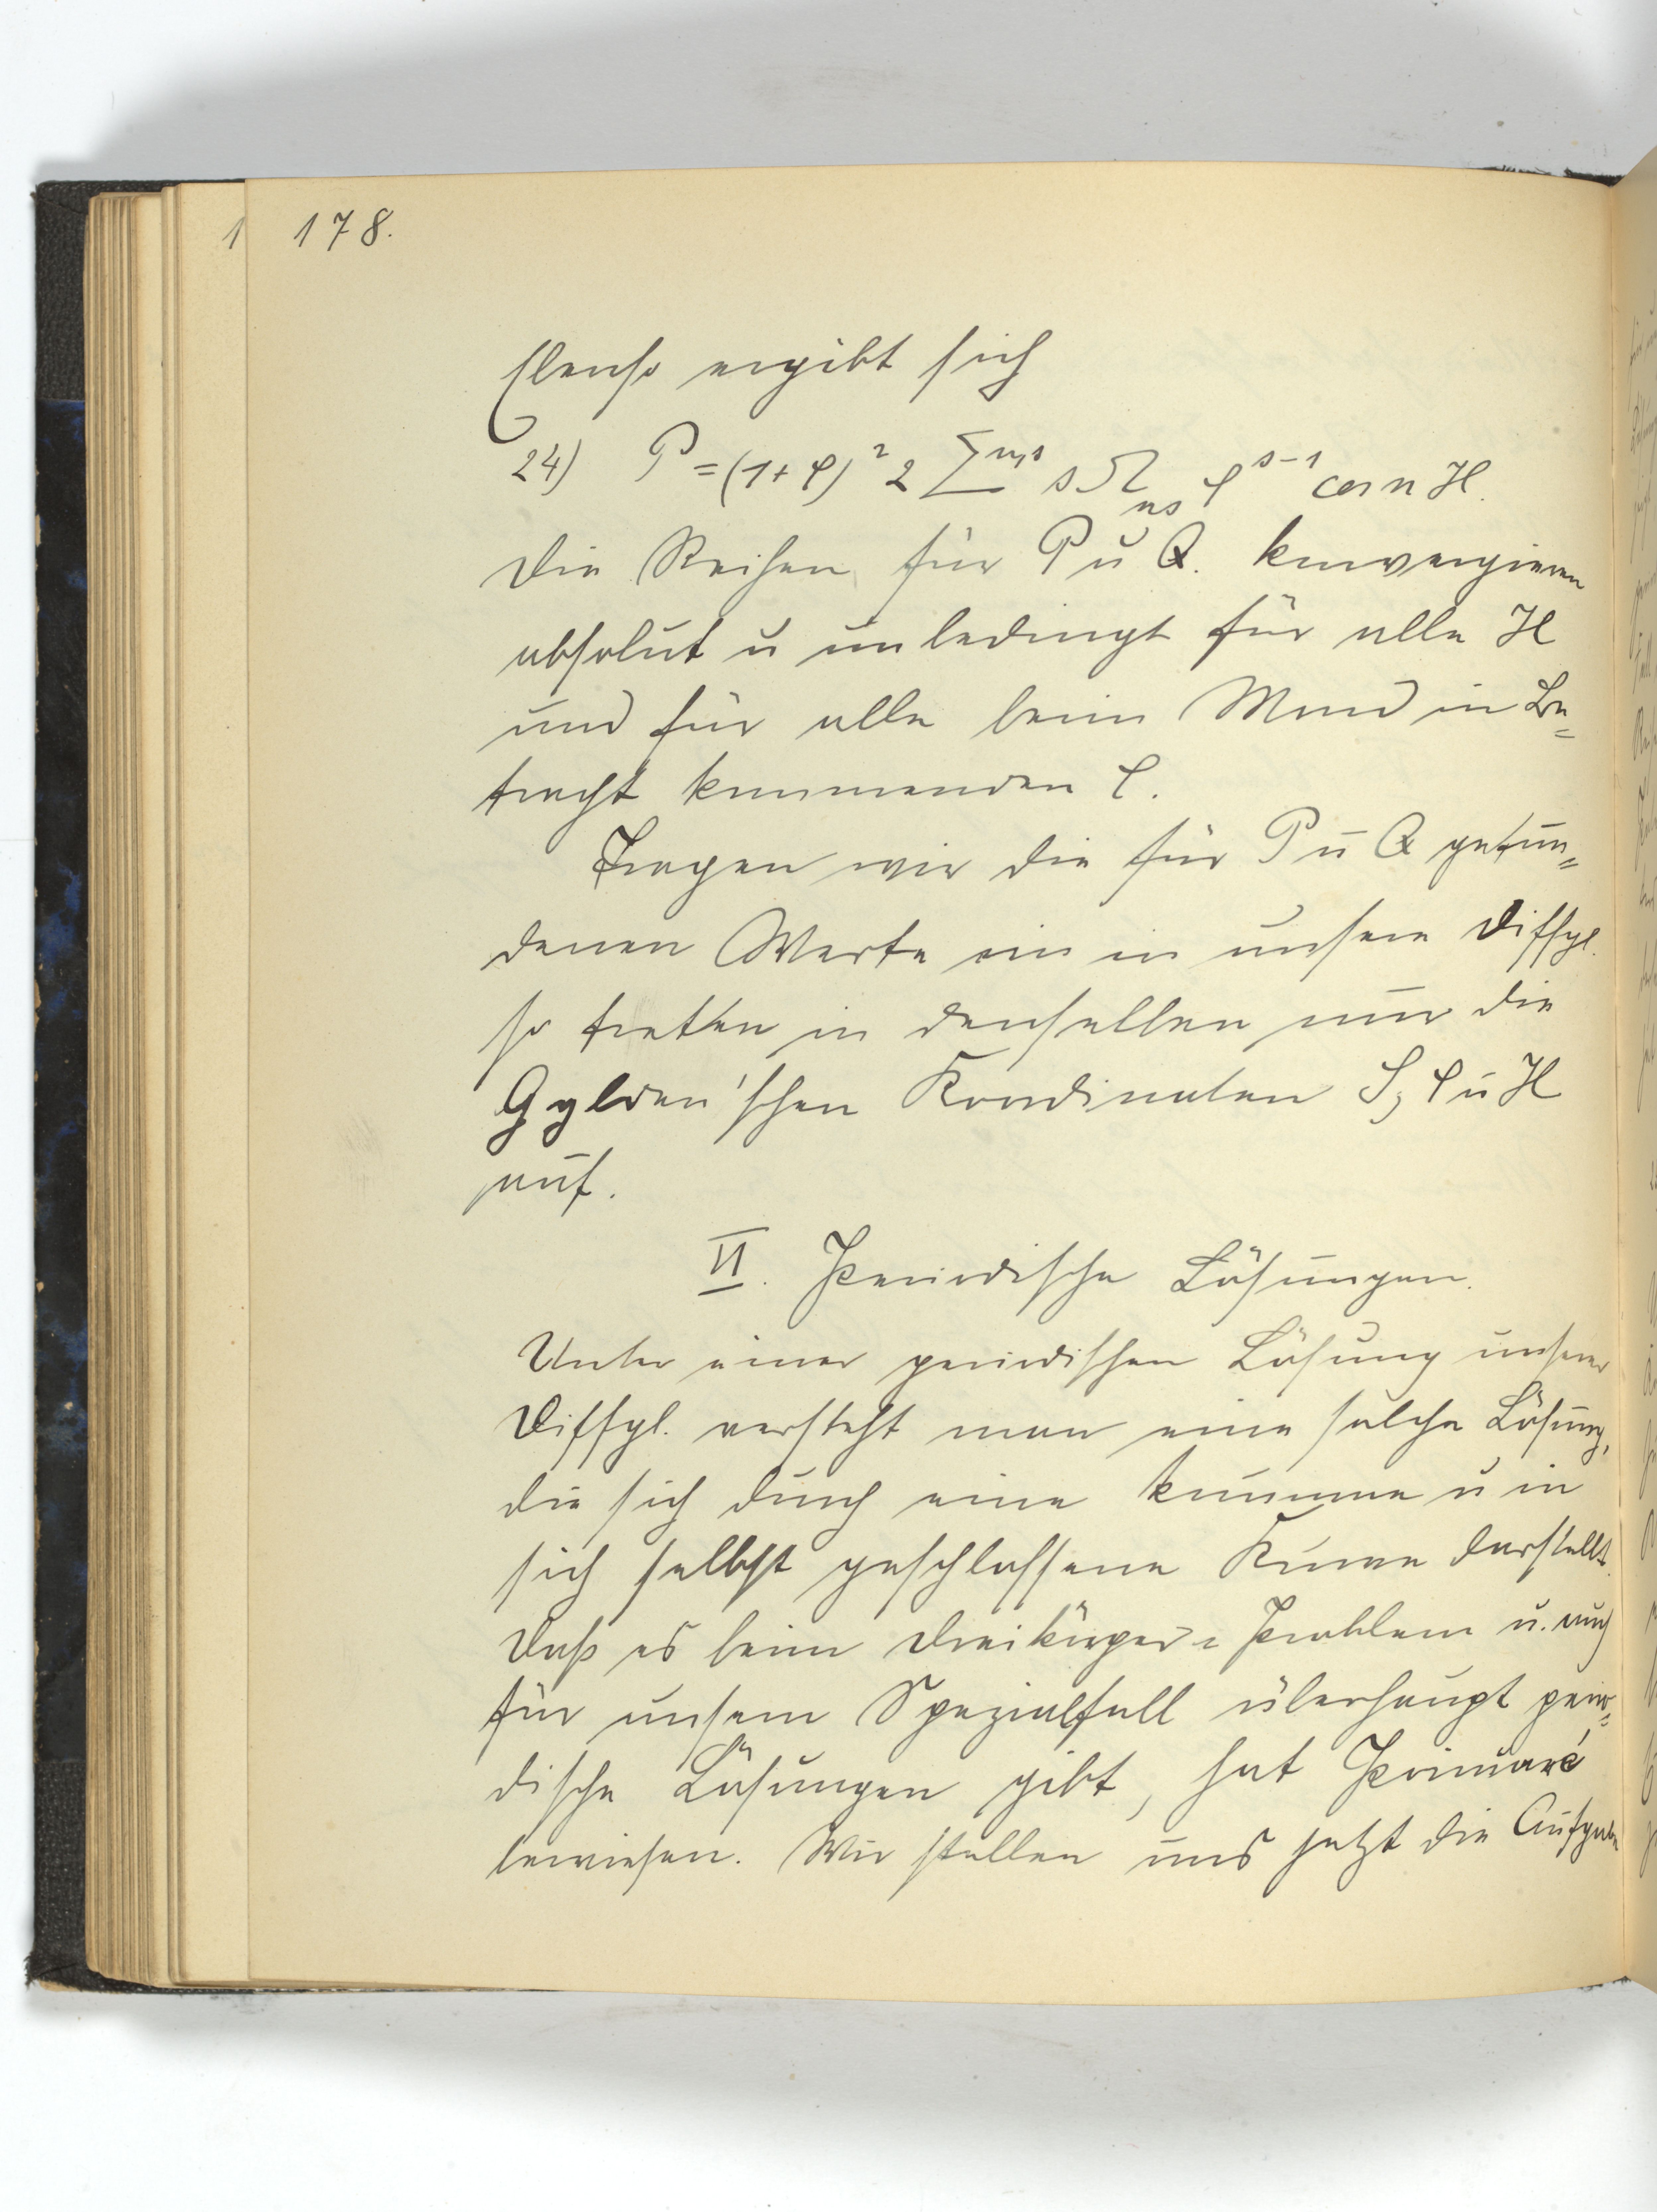 178.
Ebenso ergibt sich
24) P = (1+φ)² 2 Σⁿ,ˢ s Ω_ns ρ^{s-1} cos n H.
Die Reihen für P u Q. konvergieren
absolut u unbedingt für alle H
und für alle beim Mond in Be=
tracht kommenden ρ.
Tragen wir die für P u Q gefun=
denen Werte ein in unsere Diffgl.
so treten in denselben nur die
Gylden'schen Koordinaten S, ρ u H
auf.
II. Periodische Lösungen.
Unter einer periodischen Lösung unserer
Diffgl. versteht man eine solche Lösung,
die sich durch eine krumme u in
sich selbst geschlossene Kurve darstellt.
Daß es beim Dreikörper=Problem u. auch
für unsern Spezialfall überhaupt perio=
dische Lösungen gibt, hat Poincaré
bewiesen. Wir stellen uns jetzt die Aufgabe